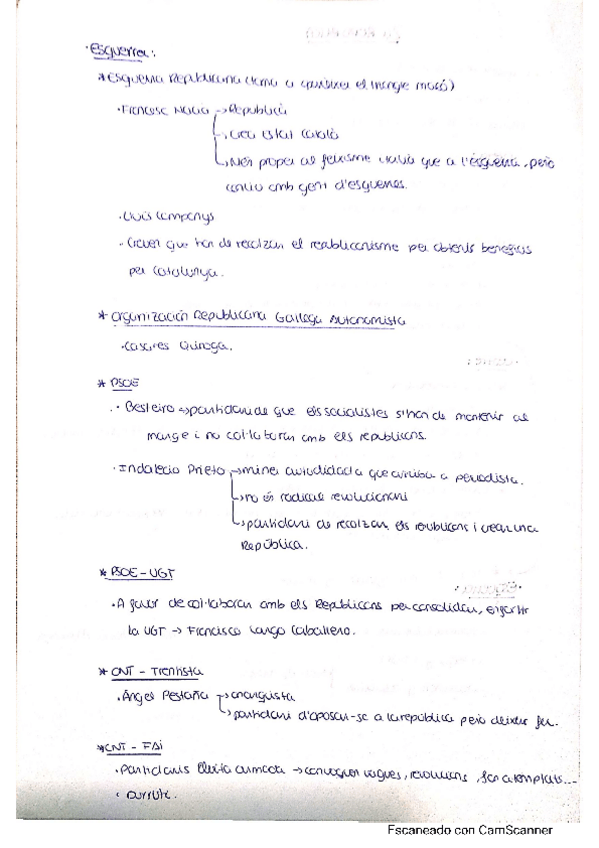 ·Esguerra:
* Esguerra Republicana
·Francesc Macià → Republicà
↳ Crea Estat Català
↳ Més proper al feixisme italià que a l'esguerra, però
amb gent d'esguerres.
·Lluís Companys
· Creuen que han de recolzar el republicanisme per obtenir beneficis
per Catalunya.
* Organización Republicana Gallega Autonomista
·Casares Quiroga.
* PSOE
· Besteiro → partidari de que els socialistes s'han de mantenir al
marge i no col·laborar amb els republicans.
· Indalecio Prieto → miner autodidacta que arriba a periodista.
↳ no és radical revolucionari
↳ partidari de recolzar els republicans i crear una
República.
* PSOE - UGT
· A favor de col·laborar amb els Republicans per consolidar, enfortir
la UGT → Francisco Largo Caballero.
* CNT - Trentista
· Ángel Pestaña → anarquista
↳ partidari d'aposar-se a la república però deixar fer.
* CNT - FAI
· Partidaris lluita armada → convoquen vagues, revolucions, fan atemptats...
· Durruti.
Escaneado con CamScanner